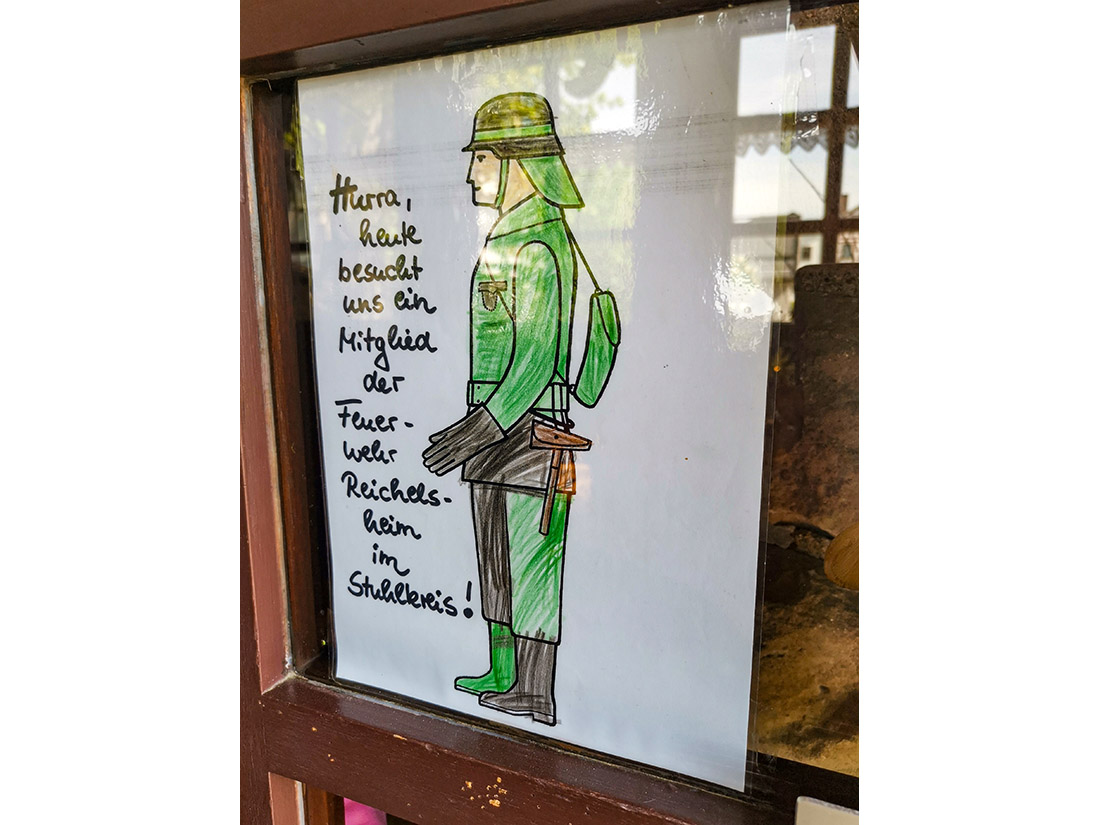 Hurra,
heute
besucht
uns ein
Mitglied
der
Feuer-
wehr
Reichels-
heim
im
Stuhlkreis!